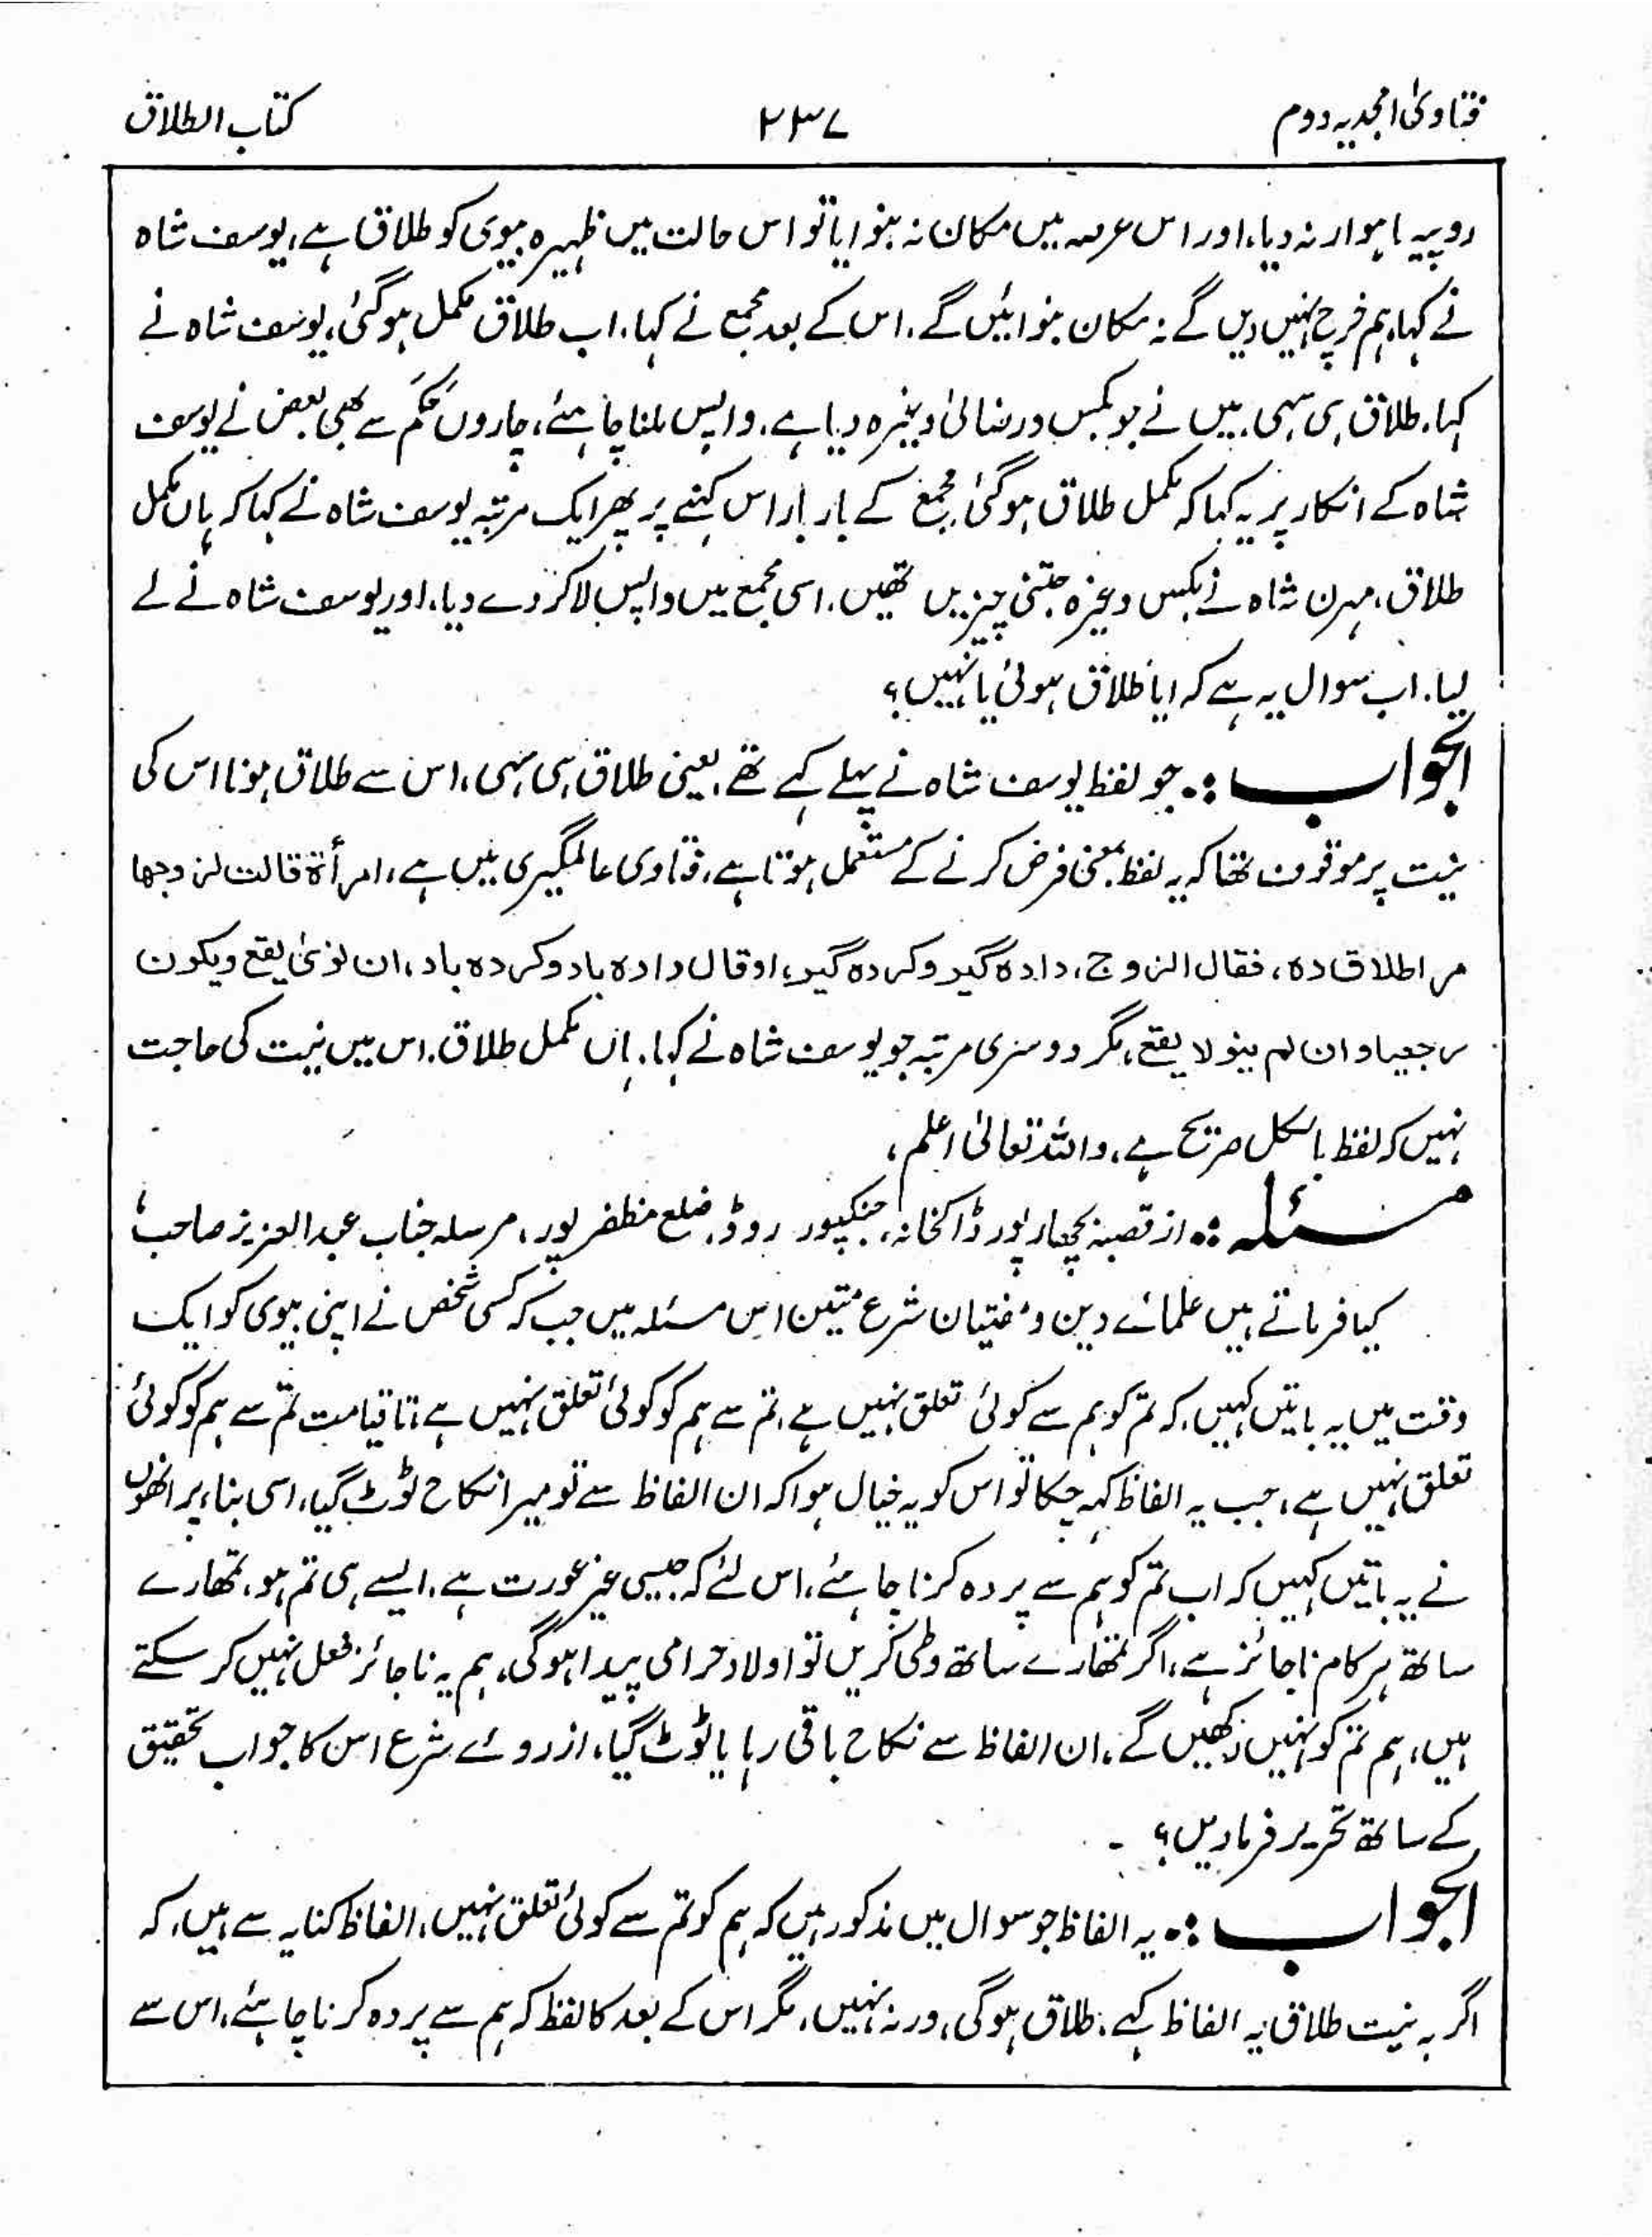 فتاویٰ امجدیہ دوم
۲۳۷
کتاب الطلاق
روپیہ ماہوار نہ دیا، اور اس عرصہ میں مکان نہ بنوایا تو اس حالت میں ظہیرہ بیوی کو طلاق ہے، یوسف شاہ
نے کہا، ہم خرچ نہیں دیں گے نہ مکان بنوائیں گے، اس کے بعد مجمع نے کہا، اب طلاق مکمل ہوگئی، یوسف شاہ نے
کہا، طلاق ہی سہی، میں نے جو بکس و رضائی وغیرہ دیا ہے، واپس ملنا چاہئے، چاروں حَکَم سے بھی بعض نے یوسف
شاہ کے انکار پر یہ کہا کہ مکمل طلاق ہوگئی، مجمع کے بار بار اس کہنے پر پھر ایک مرتبہ یوسف شاہ نے کہا کہ ہاں مکمل
طلاق، مہرن شاہ نے بکس وغیرہ جتنی چیزیں تھیں، اسی مجمع میں واپس لا کر دے دیا، اور یوسف شاہ نے لے
لیا، اب سوال یہ ہے کہ آیا طلاق ہوئی یا نہیں؟
الجواب :۔ جو لفظ یوسف شاہ نے پہلے کہے تھے، یعنی طلاق ہی سہی، اس سے طلاق ہونا اس کی
نیت پر موقوف تھا کہ یہ لفظ بمعنی فرض کرنے کے مستعمل ہوتا ہے، فتاوی عالمگیری میں ہے، امرأة قالت لزوجها
مرا طلاق ده، فقال الزوج، داده گیر و کرده گیر، او قال داده باد و کرده باد، ان نویٰ یقع ویکون
رجعیا وان لم ینو لا یقع، مگر دوسری مرتبہ جو یوسف شاہ نے کہا، ہاں مکمل طلاق، اس میں نیت کی حاجت
نہیں کہ لفظ بالکل صریح ہے، واللہ تعالیٰ اعلم،
مسئلہ :۔ از قصبہ پچھار پور ڈاکخانہ، جنکپور روڈ، ضلع مظفر پور، مرسلہ جناب عبدالعزیز صاحب،
کیا فرماتے ہیں علمائے دین و مفتیان شرع متین اس مسئلہ میں جب کہ کسی شخص نے اپنی بیوی کو ایک
وقت میں یہ باتیں کہیں، کہ تم کو ہم سے کوئی تعلق نہیں ہے، تم سے ہم کو کوئی تعلق نہیں ہے، تا قیامت تم سے ہم کو کوئی
تعلق نہیں ہے، جب یہ الفاظ کہہ چکا تو اس کو یہ خیال ہوا کہ ان الفاظ سے تو میرا نکاح ٹوٹ گیا، اسی بناء پر انھوں
نے یہ باتیں کہیں کہ اب تم کو ہم سے پردہ کرنا چاہئے، اس لئے کہ جیسی غیر عورت ہے، ایسے ہی تم ہو، تمھارے
ساتھ ہر کام ناجائز ہے، اگر تمھارے ساتھ وطی کریں تو اولاد حرامی پیدا ہوگی، ہم یہ ناجائز فعل نہیں کر سکتے
ہیں، ہم تم کو نہیں رکھیں گے، ان الفاظ سے نکاح باقی رہا یا ٹوٹ گیا، از روئے شرع اس کا جواب تحقیق
کے ساتھ تحریر فرمادیں؟
الجواب :۔ یہ الفاظ جو سوال میں مذکور ہیں کہ ہم کو تم سے کوئی تعلق نہیں، الفاظ کنایہ سے ہیں، کہ
اگر بہ نیت طلاق یہ الفاظ کہے، طلاق ہوگی، ورنہ نہیں، مگر اس کے بعد کا لفظ کہ ہم سے پردہ کرنا چاہئے، اس سے